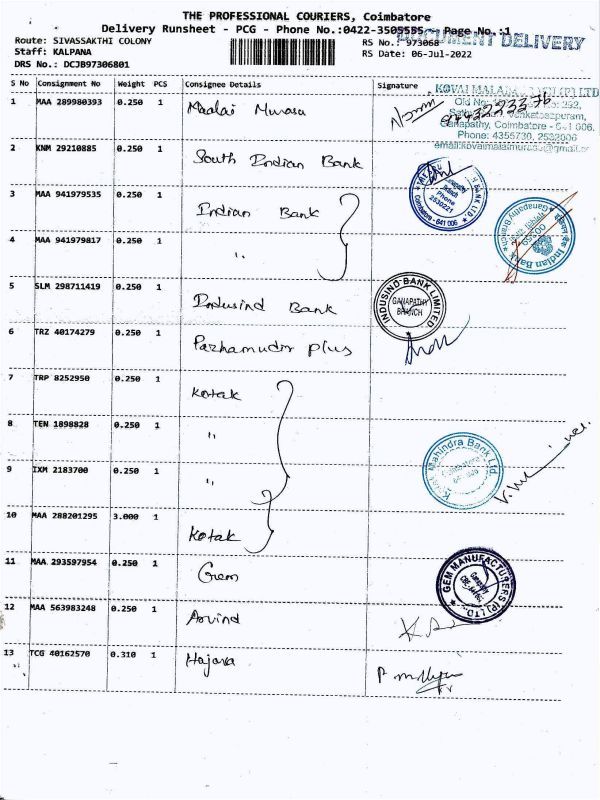 THE PROFESSIONAL COURIERS, Coimbatore
Delivery Runsheet - PCG - Phone No.:0422-3505555 Page No.:1
DOCUMENT DELIVERY
Route: SIVASSAKTHI COLONY
RS No.: 973068
Staff: KALPANA
RS Date: 06-Jul-2022
DRS No.: DCJB97306801
S No Consignment No Weight PCS Consignee Details Signature
KOVAI MALAI
Ganapathy, Coimbatore - 641 006.
Phone: 4355730, 2532006
1 MAA 289980393 0.250 1 Maalai Murasu
2 KNM 29210885 0.250 1 South Indian Bank
BANK LTD.
Ganapathy
Phone
2530221
Coimbatore - 641 006
3 MAA 941979535 0.250 1 Indian Bank
Indian Bank
Ganapathy Branch
4 MAA 941979817 0.250 1 "
5 SLM 298711419 0.250 1 Indusind Bank
INDUSIND BANK LIMITED
GANAPATHY
BRANCH
6 TRZ 40174279 0.250 1 Pazhamudir plus
7 TRP 8252950 0.250 1 Kotak
8 TEN 1898828 0.250 1 "
Kotak Mahindra Bank Ltd.
9 IXM 2183700 0.250 1 "
10 MAA 288201295 3.000 1 Kotak
11 MAA 293597954 0.250 1 Gem
GEM MANUFACTURERS (P) LTD.
Ganapathy
12 MAA 563983248 0.250 1 Arvind
13 TCG 40162570 0.310 1 Hajara